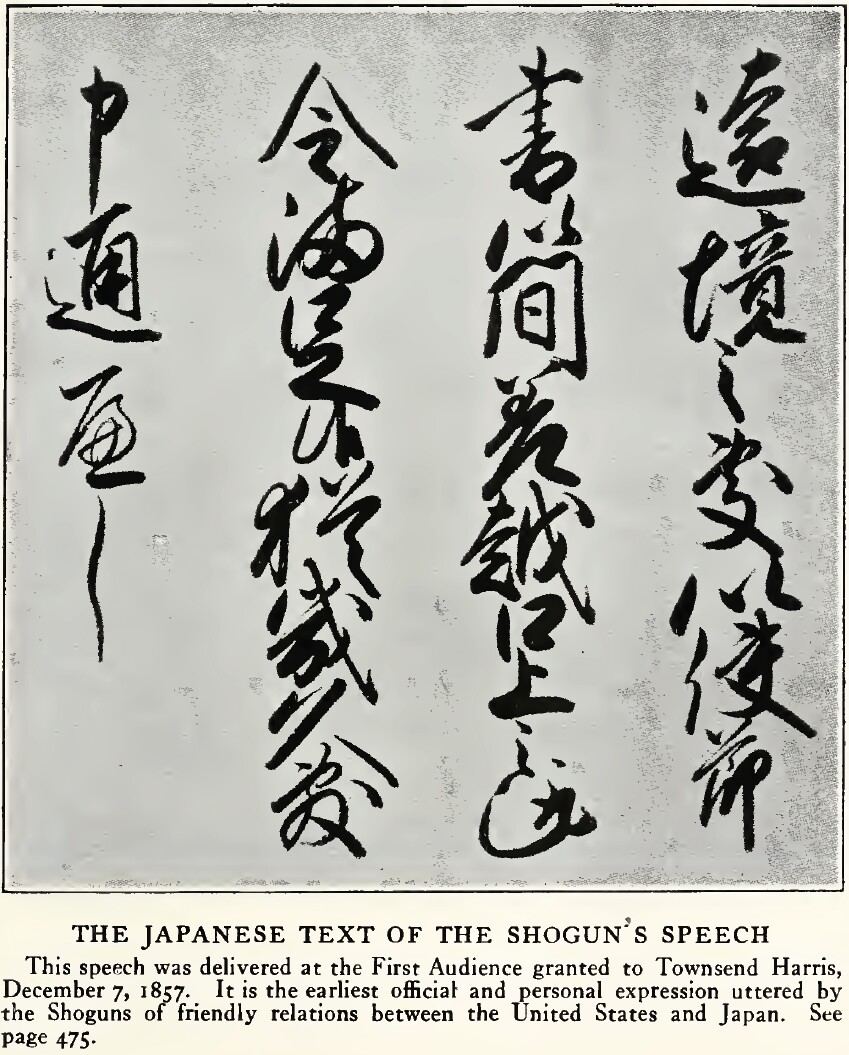 遠境之處以使節
書簡差越口上之趣
令満足候猶幾久敷
申通遍し
THE JAPANESE TEXT OF THE SHOGUN'S SPEECH
This speech was delivered at the First Audience granted to Townsend Harris,
December 7, 1857. It is the earliest official and personal expression uttered by
the Shoguns of friendly relations between the United States and Japan. See
page 475.